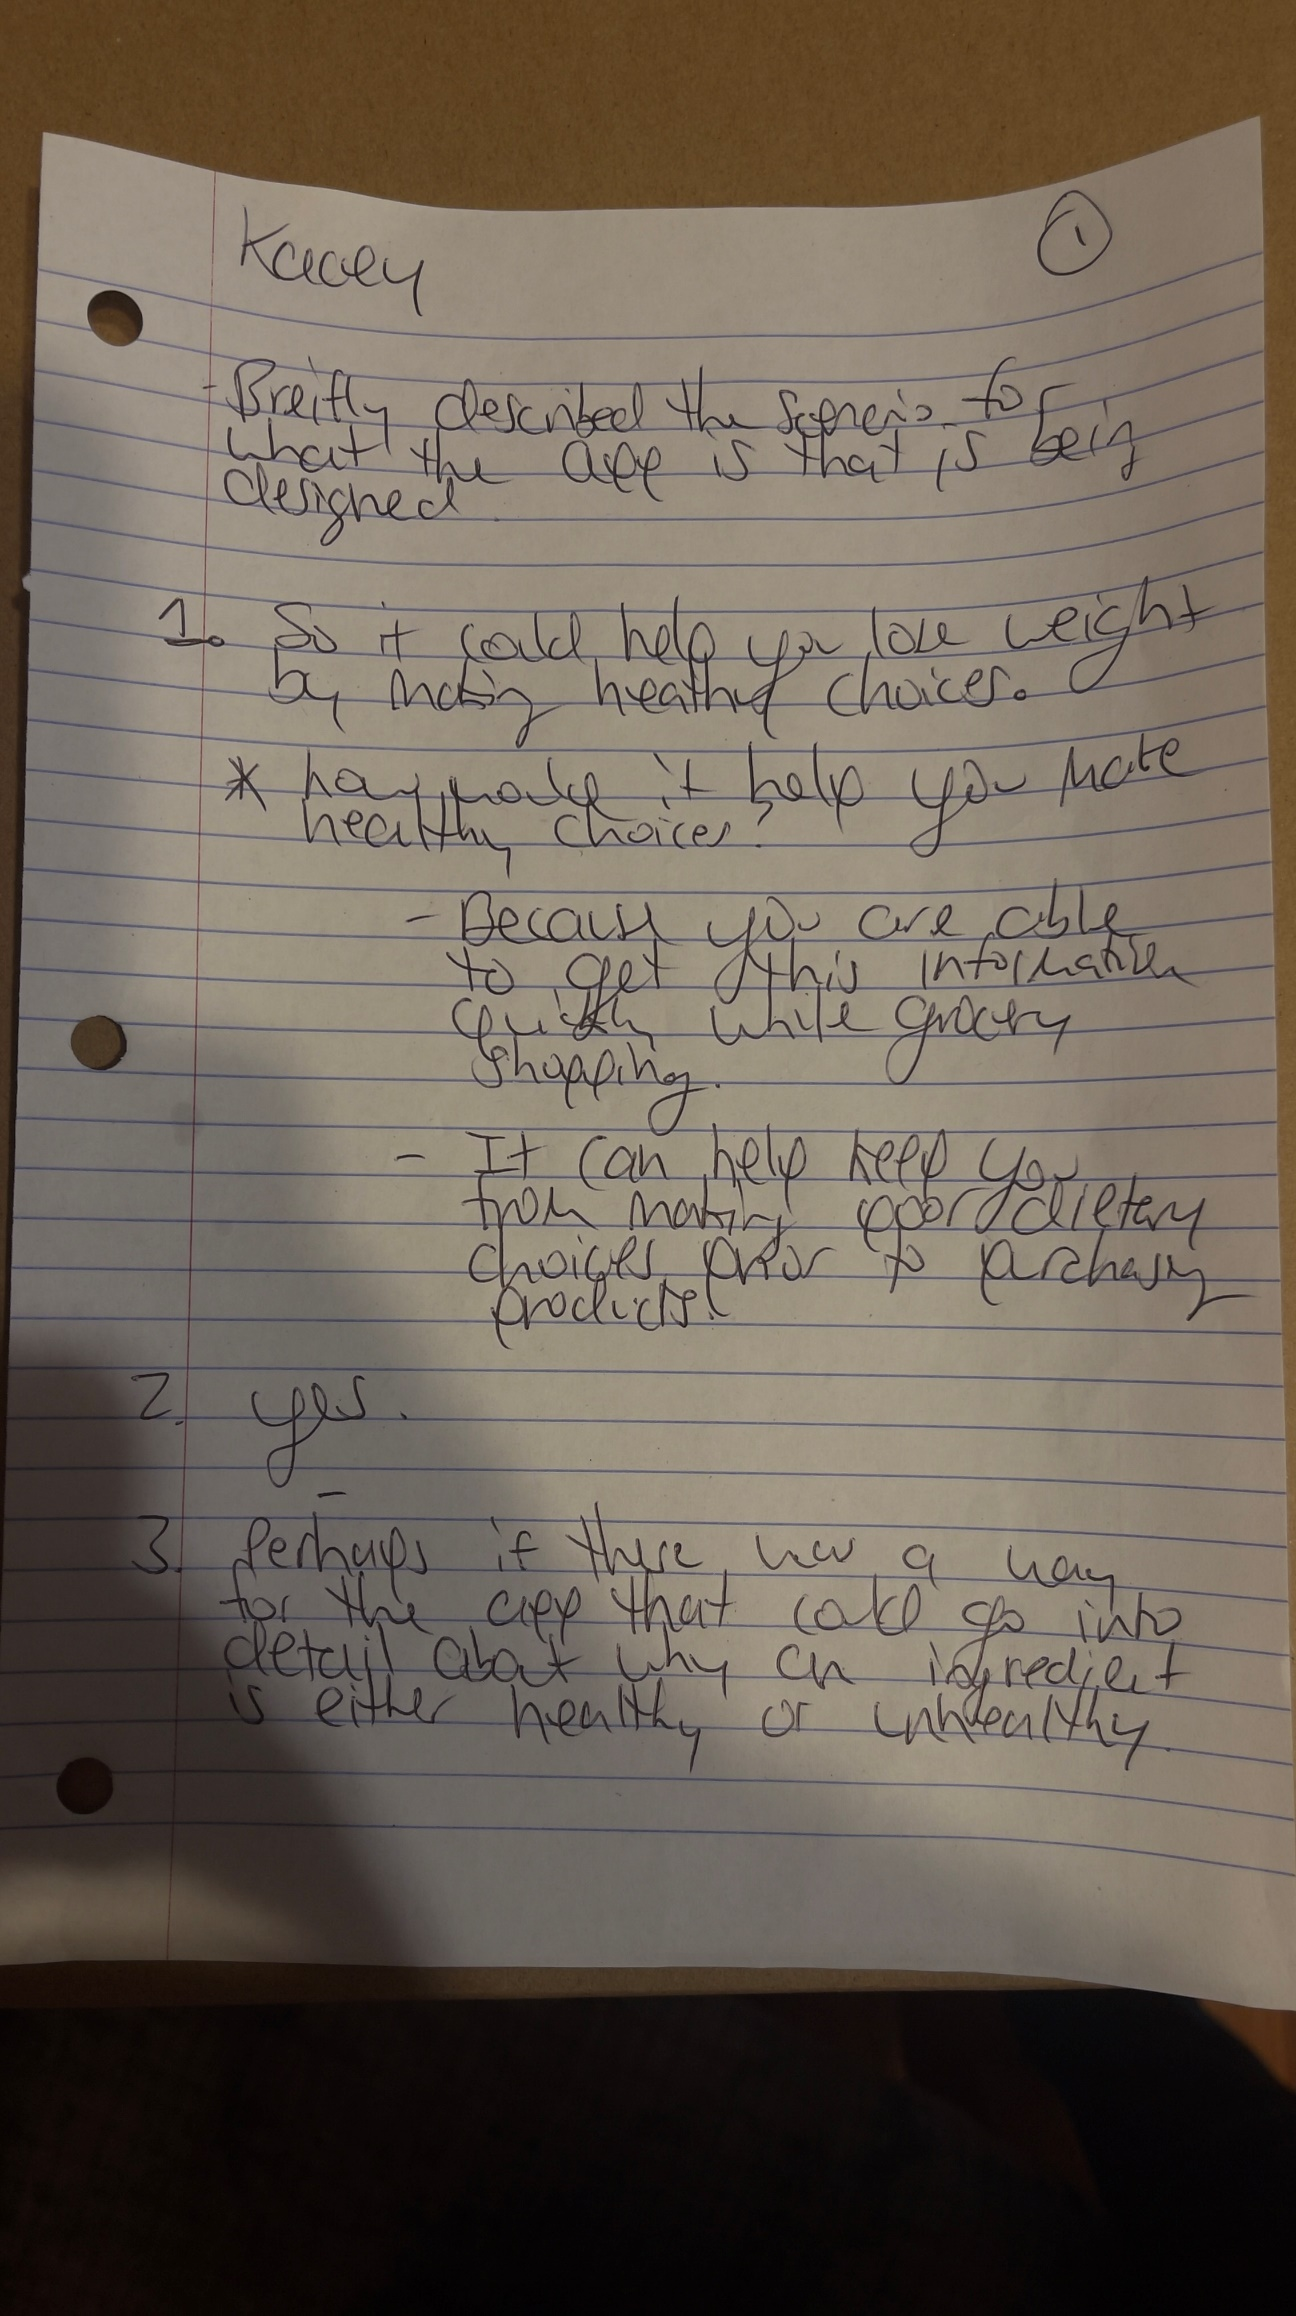 Kacey
1
- Breifly described the scenerio for
what the app is that is being
designed.
1. So it could help you lose weight
by making healthy choices.
* how would it help you make
healthy choices?
- Because you are able
to get this information
quickly while grocery
shopping.
- It can help keep you
from making poor dietary
choices prior to purchasing
products.
2. yes.
-
3. Perhaps if there was a way
for the app that could go into
detail about why an ingredient
is either healthy or unhealthy.